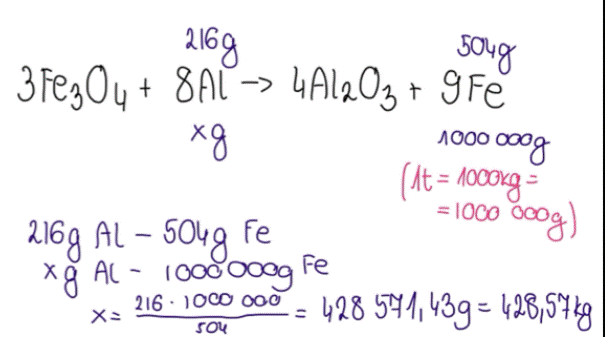 216g 504g
3Fe₃O₄ + 8Al → 4Al₂O₃ + 9Fe
xg 1000 000g
(1t = 1000kg =
= 1000 000g)
216g Al – 504g Fe
xg Al – 1000 000g Fe
x = 216 · 1000 000 / 504 = 428 571,43g = 428,57kg